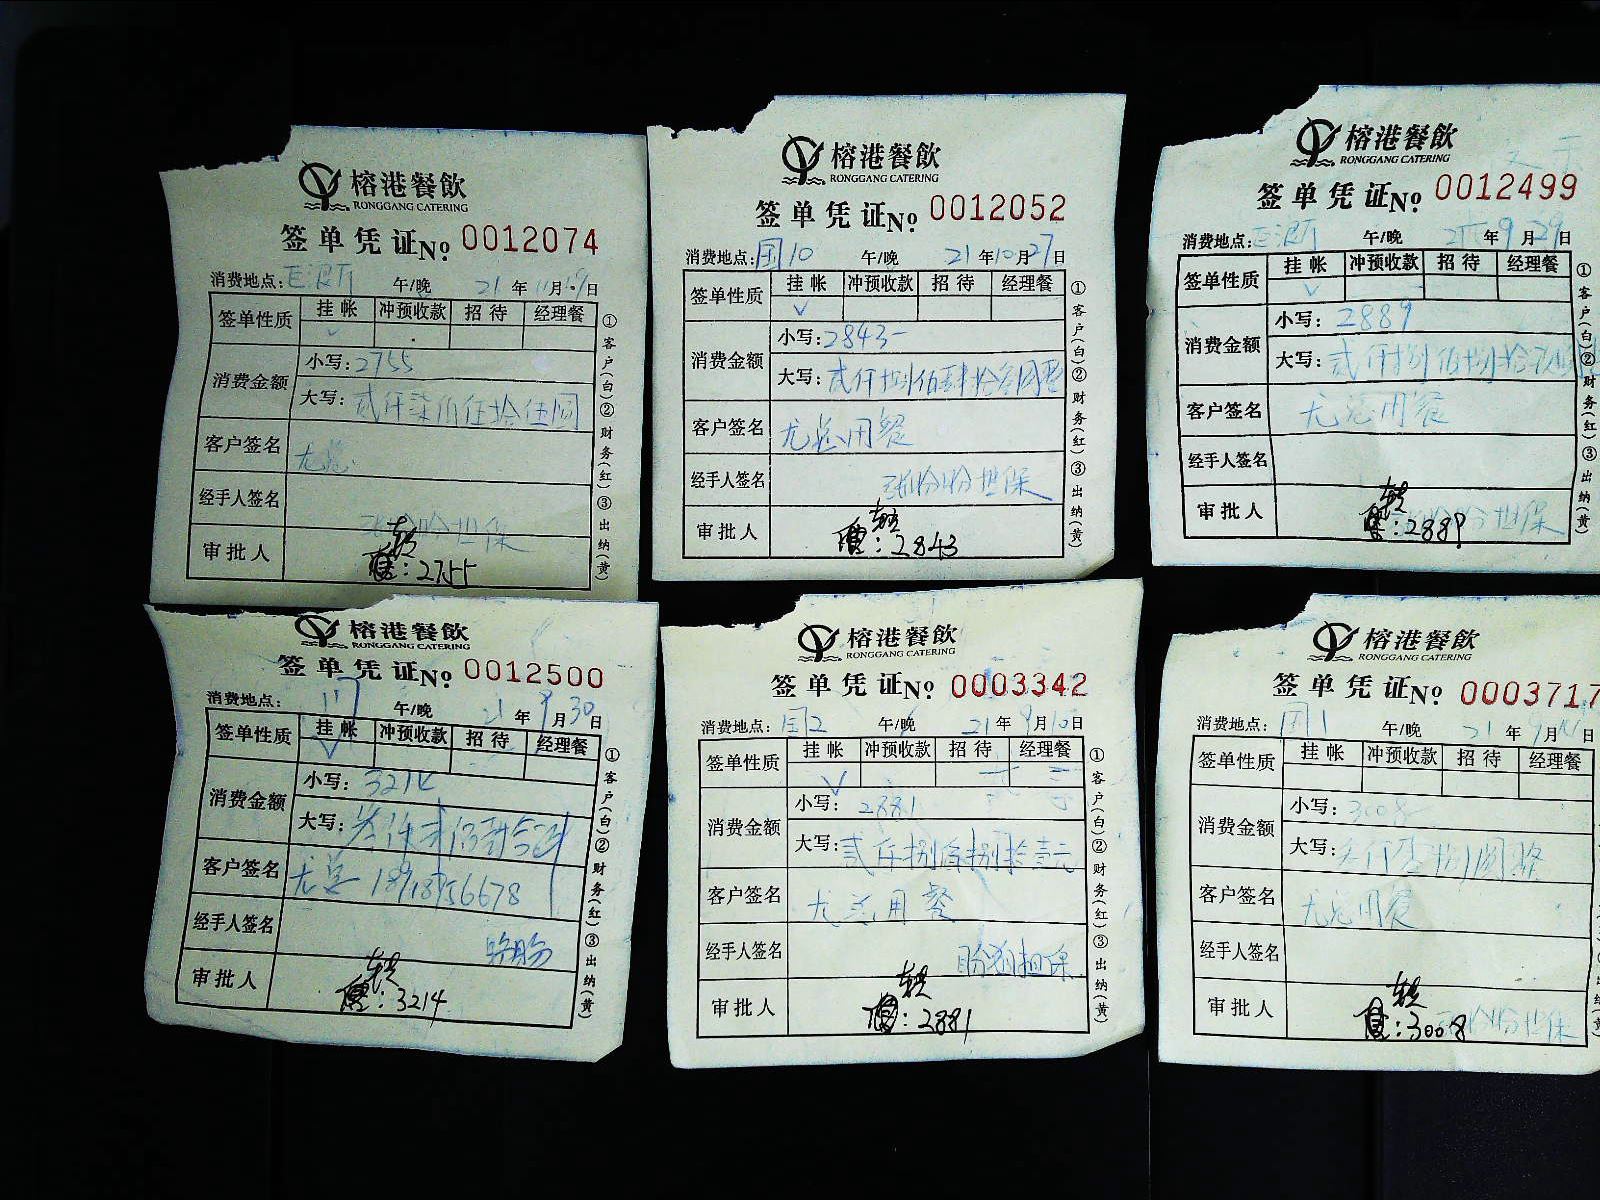 榕港餐飲
RONGGANG CATERING
签单凭证 No. 0012074
消费地点: 午/晚 21年11月19日
签单性质 挂帐 冲预收款 招待 经理餐
消费金额 小写: 2755
大写: 贰仟柒佰伍拾伍圆
客户签名 尤总
经手人签名
担保
审批人
转
值: 2755
①客户(白)②财务(红)③出纳(黄)
榕港餐飲
RONGGANG CATERING
签单凭证 No. 0012052
消费地点: 国10 午/晚 21年10月27日
签单性质 挂帐 冲预收款 招待 经理餐
消费金额 小写: 2843-
大写: 贰仟捌佰肆拾叁圆整
客户签名 尤总用餐
经手人签名 担保
审批人
转
值: 2843
①客户(白)②财务(红)③出纳(黄)
榕港餐飲
RONGGANG CATERING
签单凭证 No. 0012499
消费地点: 午/晚 21年9月29日
签单性质 挂帐 冲预收款 招待 经理餐
消费金额 小写: 2889
大写: 贰仟捌佰捌拾玖
客户签名 尤总用餐
经手人签名
审批人 担保
转
值: 2889
①客户(白)②财务(红)③出纳(黄)
榕港餐飲
RONGGANG CATERING
签单凭证 No. 0012500
消费地点: 午/晚 21年9月30日
签单性质 挂帐 冲预收款 招待 经理餐
消费金额 小写: 3214
大写: 叁仟贰佰
客户签名 尤总
经手人签名
审批人
转
值: 3214
①客户(白)②财务(红)③出纳(黄)
榕港餐飲
RONGGANG CATERING
签单凭证 No. 0003342
消费地点: 国2 午/晚 21年9月10日
签单性质 挂帐 冲预收款 招待 经理餐
消费金额 小写: 2881
大写: 贰仟捌佰捌拾壹元
客户签名 尤总用餐
经手人签名 担保
审批人
转
值: 2881
①客户(白)②财务(红)③出纳(黄)
榕港餐飲
RONGGANG CATERING
签单凭证 No. 0003717
消费地点: 国1 午/晚 21年9月 日
签单性质 挂帐 冲预收款 招待 经理餐
消费金额 小写: 3008-
大写: 叁仟零捌圆整
客户签名 尤总用餐
经手人签名
审批人 担保
转
值: 3008